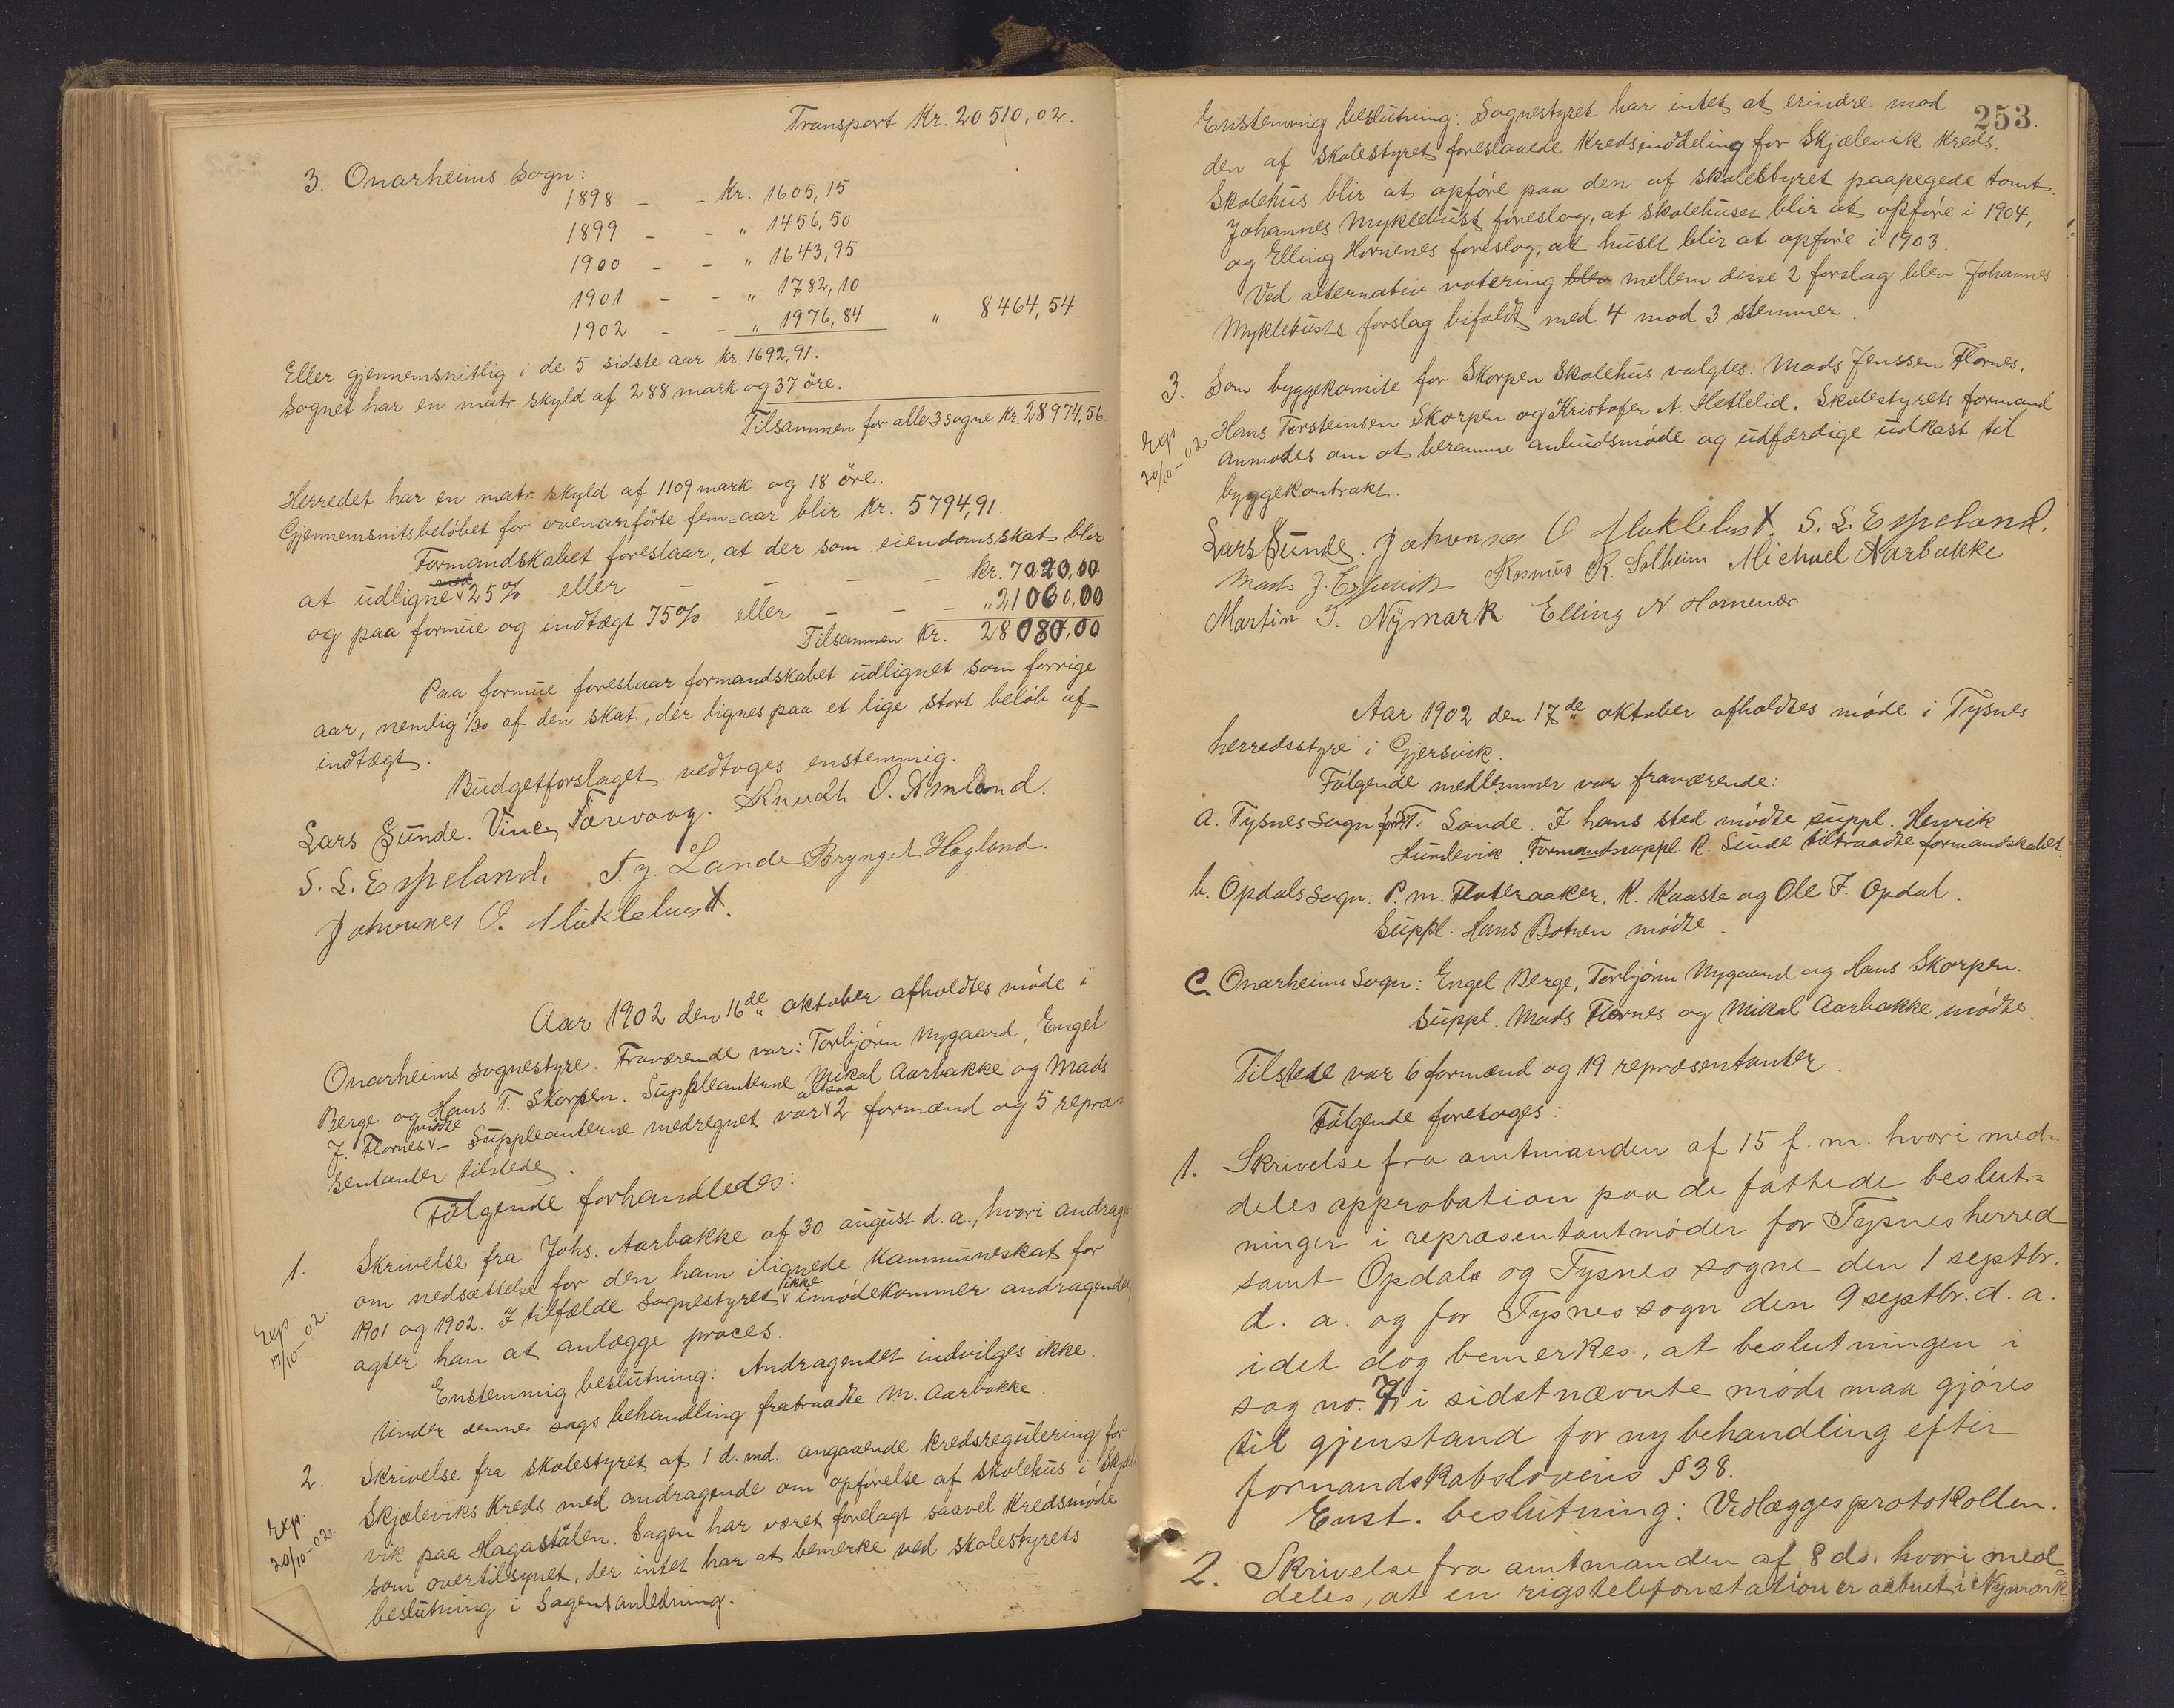 Transport Kr. 20510,02.
3. Onarheims Sogn:
1898 - - Kr. 1605,15
1899 - - " 1456,50
1900 - - " 1643,95
1901 - - " 1782,10
1902 - - " 1976,84 " 8464,54.
Eller gjennemsnitlig i de 5 sidste aar Kr. 1692,91.
Sognet har en matr. skyld af 288 mark og 37 öre.
Tilsammen for alle 3 sogne Kr. 28974,56
Herredet har en matr. skyld af 1109 mark og 18 öre.
Gjennemsnitsbelöbet for ovenanförte fem-aar blir Kr. 5794,91.
Formandskabet foreslaar, at der som eiendomsskat blir
at udligne 25% eller - - - - Kr. 7020,00
og paa formue og indtægt 75% eller - - - " 21060,00
Tilsammen Kr. 28080,00
Paa formue foreslaar formandskabet udlignet som forrige
aar, nemlig 1/30 af den skat, der lignes paa et lige stort belöb af
indtægt.
Budgetforslaget vedtoges enstemmig.
Lars Sunde. Vincen Færevaag. Knudt O. Amland.
S. L. Espeland. T. J. Lande Brynget Hagland.
Johannes O. Müklebust.
Aar 1902 den 16de oktober afholdtes möde i
Onarheims sognestyre. Fraværende var: Torbjörn Nygaard, Engel
Berge og Hans T. Skorpen. Suppleanterne Mikal Aarbakke og Mads
J. Flornes mödte - Suppleanterne medregnet var altsaa 2 formænd og 5 repræ-
sentanter tilstede.
Fölgende forhandledes:
1. Skrivelse fra Johs. Aarbakke af 30 august d. a., hvori andrag
om nedsættelse for den ham ilignede Kommuneskat for
1901 og 1902. I tilfælde Sognestyret ikke imödekommer andragendet
Exp. 17/10-02. agter han at anlægge proces.
Enstemmig beslutning: Andragendet indvilges ikke.
Under denne sags behandling fratraadte M. Aarbakke.
2. Skrivelse fra skolestyret af 1 d. md. angaaende Kredsregulering for
Skjæleviks Kreds med andragende om opförelse af Skolehus i Skjæle
Exp. 20/10-02. vik paa Hagastölen. Sagen har været forelagt saavel Kredsmöde
som overtilsynet, der intet har at bemerke ved skolestyrets
beslutning i Sagens anledning.
253.
Enstemmig beslutning: Sognestyret har intet at erindre mod
den af Skolestyret foreslaaede Kredsinddeling for Skjælevik Kreds.
Skolehus blir at opföre paa den af skolestyret paapegede tomt.
Johannes Myklebust foreslog, at Skolehuset blir at opföre i 1904,
og Elling Hornenes foreslog, at huset blir at opföre i 1903.
Ved alternativ votering blev mellem disse 2 forslag blev Johannes
Myklebusts forslag bifaldt med 4 mod 3 stemmer.
3. Som byggekomite for Skorpen Skolehus valgtes: Mads Jenssen Flornes,
Exp. 20/10-02 Hans Torsteinsen Skorpen og Kristofer A. Hetlelid. Skolestyrets formand
anmodes om at beramme anbudsmöde og udfærdige udkast til
byggekontrakt.
Lars Sunde. Johannes O Müklebust. S. L. Espeland.
Mads J. Espevik Rasmus R. Solheim Michael Aarbakke
Martin T. Nymark Elling N. Hornenes
Aar 1902 den 17de oktober afholdtes möde i Tysnes
herredsstyre i Gjersvik.
Fölgende medlemmer var fraværende:
a. Tysnes Sogn: T. Lande. I hans sted mödte suppl. Henrik
Humlevik. Formandssuppl. R. Sunde tiltraadte formandskabet.
b. Opdals sogn: P. M. Flateraaker, K. Kaaste og Ole F. Opdal.
Suppl. Hans Botnen mödte.
C. Onarheims Sogn: Engel Berge, Torbjörn Nygaard og Hans Skorpen.
Suppl. Mads Flornes og Mikal Aarbakke mödte.
Tilstede var 6 formænd og 19 repræsentanter.
Fölgende foretoges:
1. Skrivelse fra amtmanden af 15 f. m. hvori med-
deles approbation paa de fattede beslut-
ninger i repræsentantmöder for Tysnes herred
samt Opdals og Tysnes sogne den 1 septbr.
d. a. og for Tysnes sogn den 9 septbr. d. a.
idet dog bemerkes, at beslutningen i
sag no. 7 i sidstnævnte möde maa gjöres
til gjenstand for ny behandling efter
formandskabslovens § 38.
Enst. beslutning: Vedlægges protokollen.
2. Skrivelse fra amtmanden af 8 ds. hvori med-
deles, at en rigstelefonstation er aabnet i Nymark.